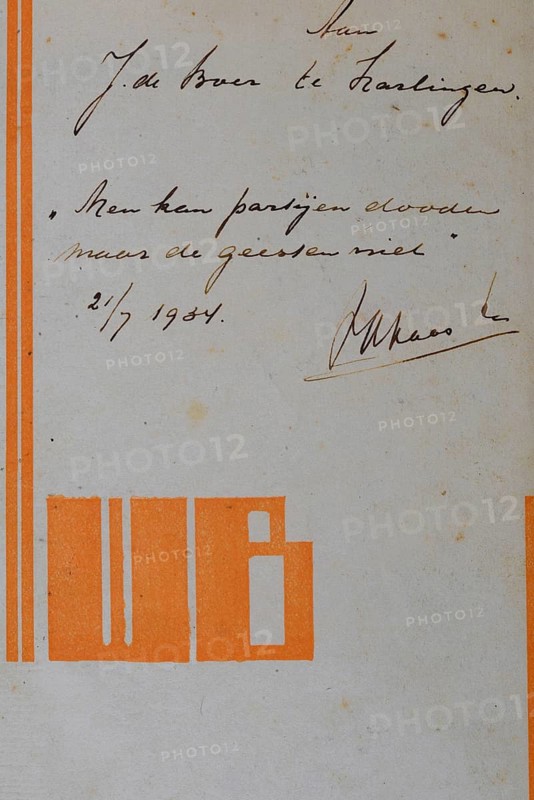 Aan
J. de Boer te Harlingen.
„Men kan partijen dooden
maar de geesten niet"
21/7 1934.
WB